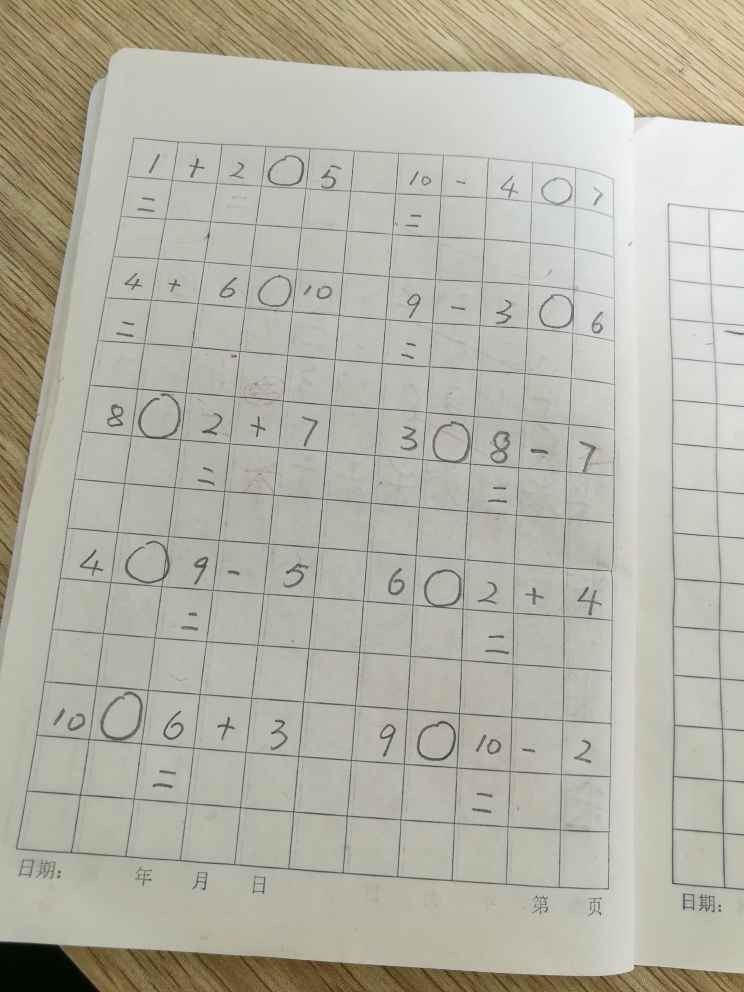 1 + 2 ○ 5 10 - 4 ○ 7
= =
4 + 6 ○ 10 9 - 3 ○ 6
= =
8 ○ 2 + 7 3 ○ 8 - 7
= =
4 ○ 9 - 5 6 ○ 2 + 4
= =
10 ○ 6 + 3 9 ○ 10 - 2
= =
日期： 年 月 日
第 页
日期：